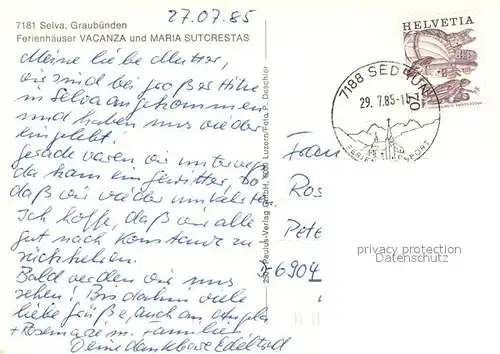 27.07.85
7181 Selva, Graubünden
Ferienhäuser VACANZA und MARIA SUTCRESTAS
Meine liebe Mutter,
wir sind bei großer Hitze
in Selva angekommen
und haben uns wieder
eingelebt.
Gerade waren wir unterwegs
da kam ein Gewitter, so
daß wir wieder umkehrten.
Ich hoffe, daß wir alle
gut nach Konstanz zu-
rückkehren.
Bald werden wir uns
sehen! Bis dahin viele
liebe Grüße, auch an Angela
+ Rosemarie m. Familie
Deine dankbare Edeltrud
Paulus-Verlag GmbH, Luzern/Foto P.
HELVETIA
7188 SEDRUN
29.7.85-
FERIEN SPORT
Frau
Ros
Pete
6904
privacy protection
Datenschutz